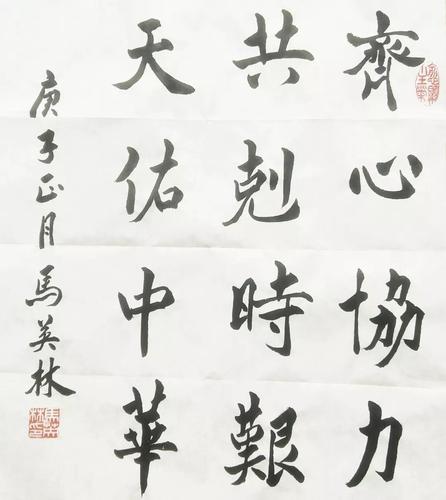 齊心協力
共剋時艱
天佑中華
庚子正月馬英林